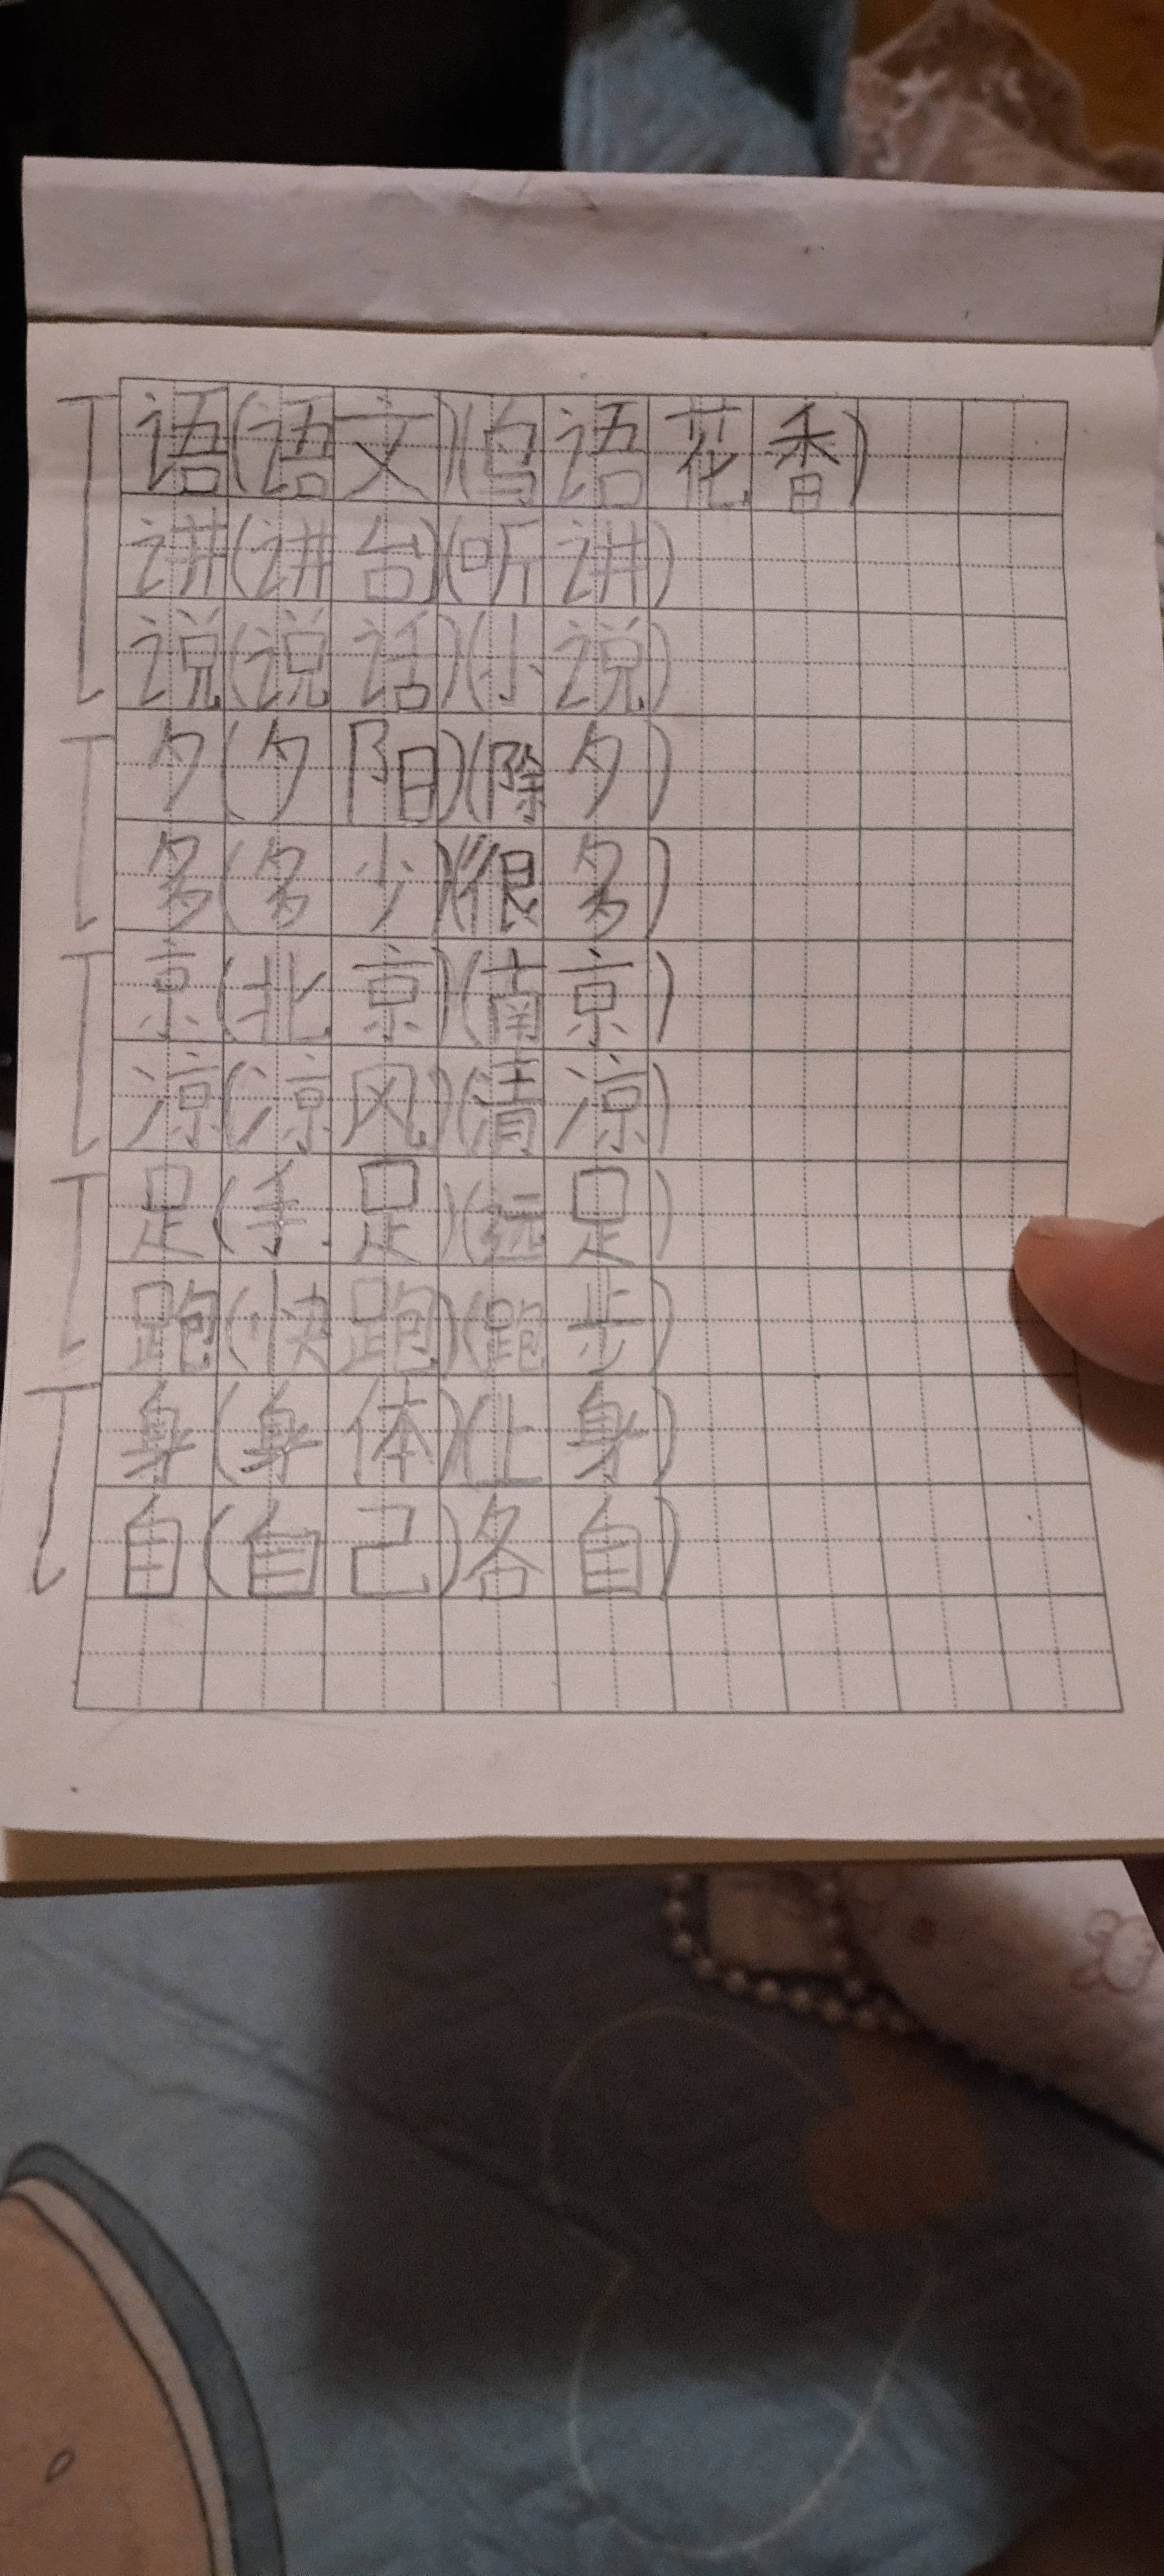 语(语文)(鸟语花香)
讲(讲台)(听讲)
说(说话)(小说)
夕(夕阳)(除夕)
多(多少)(很多)
京(北京)(南京)
凉(凉风)(清凉)
足(手足)(远足)
跑(快跑)(跑步)
身(身体)(上身)
自(自己)各自)